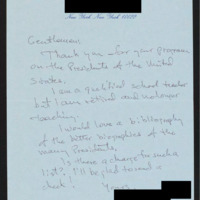 New York New York 10022
Gentlemen,
Thank you for your program
on the Presidents of the United
States.
I am a qualified school teacher
but I am retired and no longer
teaching.
I would love a bibliography
of the better biographies of the
various Presidents.
Is there a charge for such a
list? I'll be glad to send a
check.
Yours